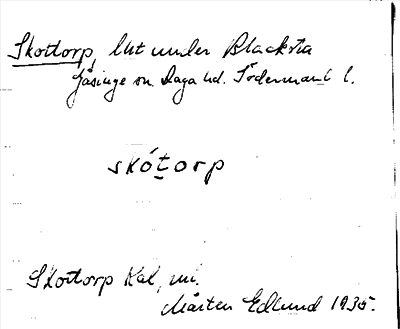 Skottorp, lht under Blacksta
Gåsinge sn Daga hd. Söderманl l.
skótorp
Skottorp Kal, un.
Mårten Edlund 1935.